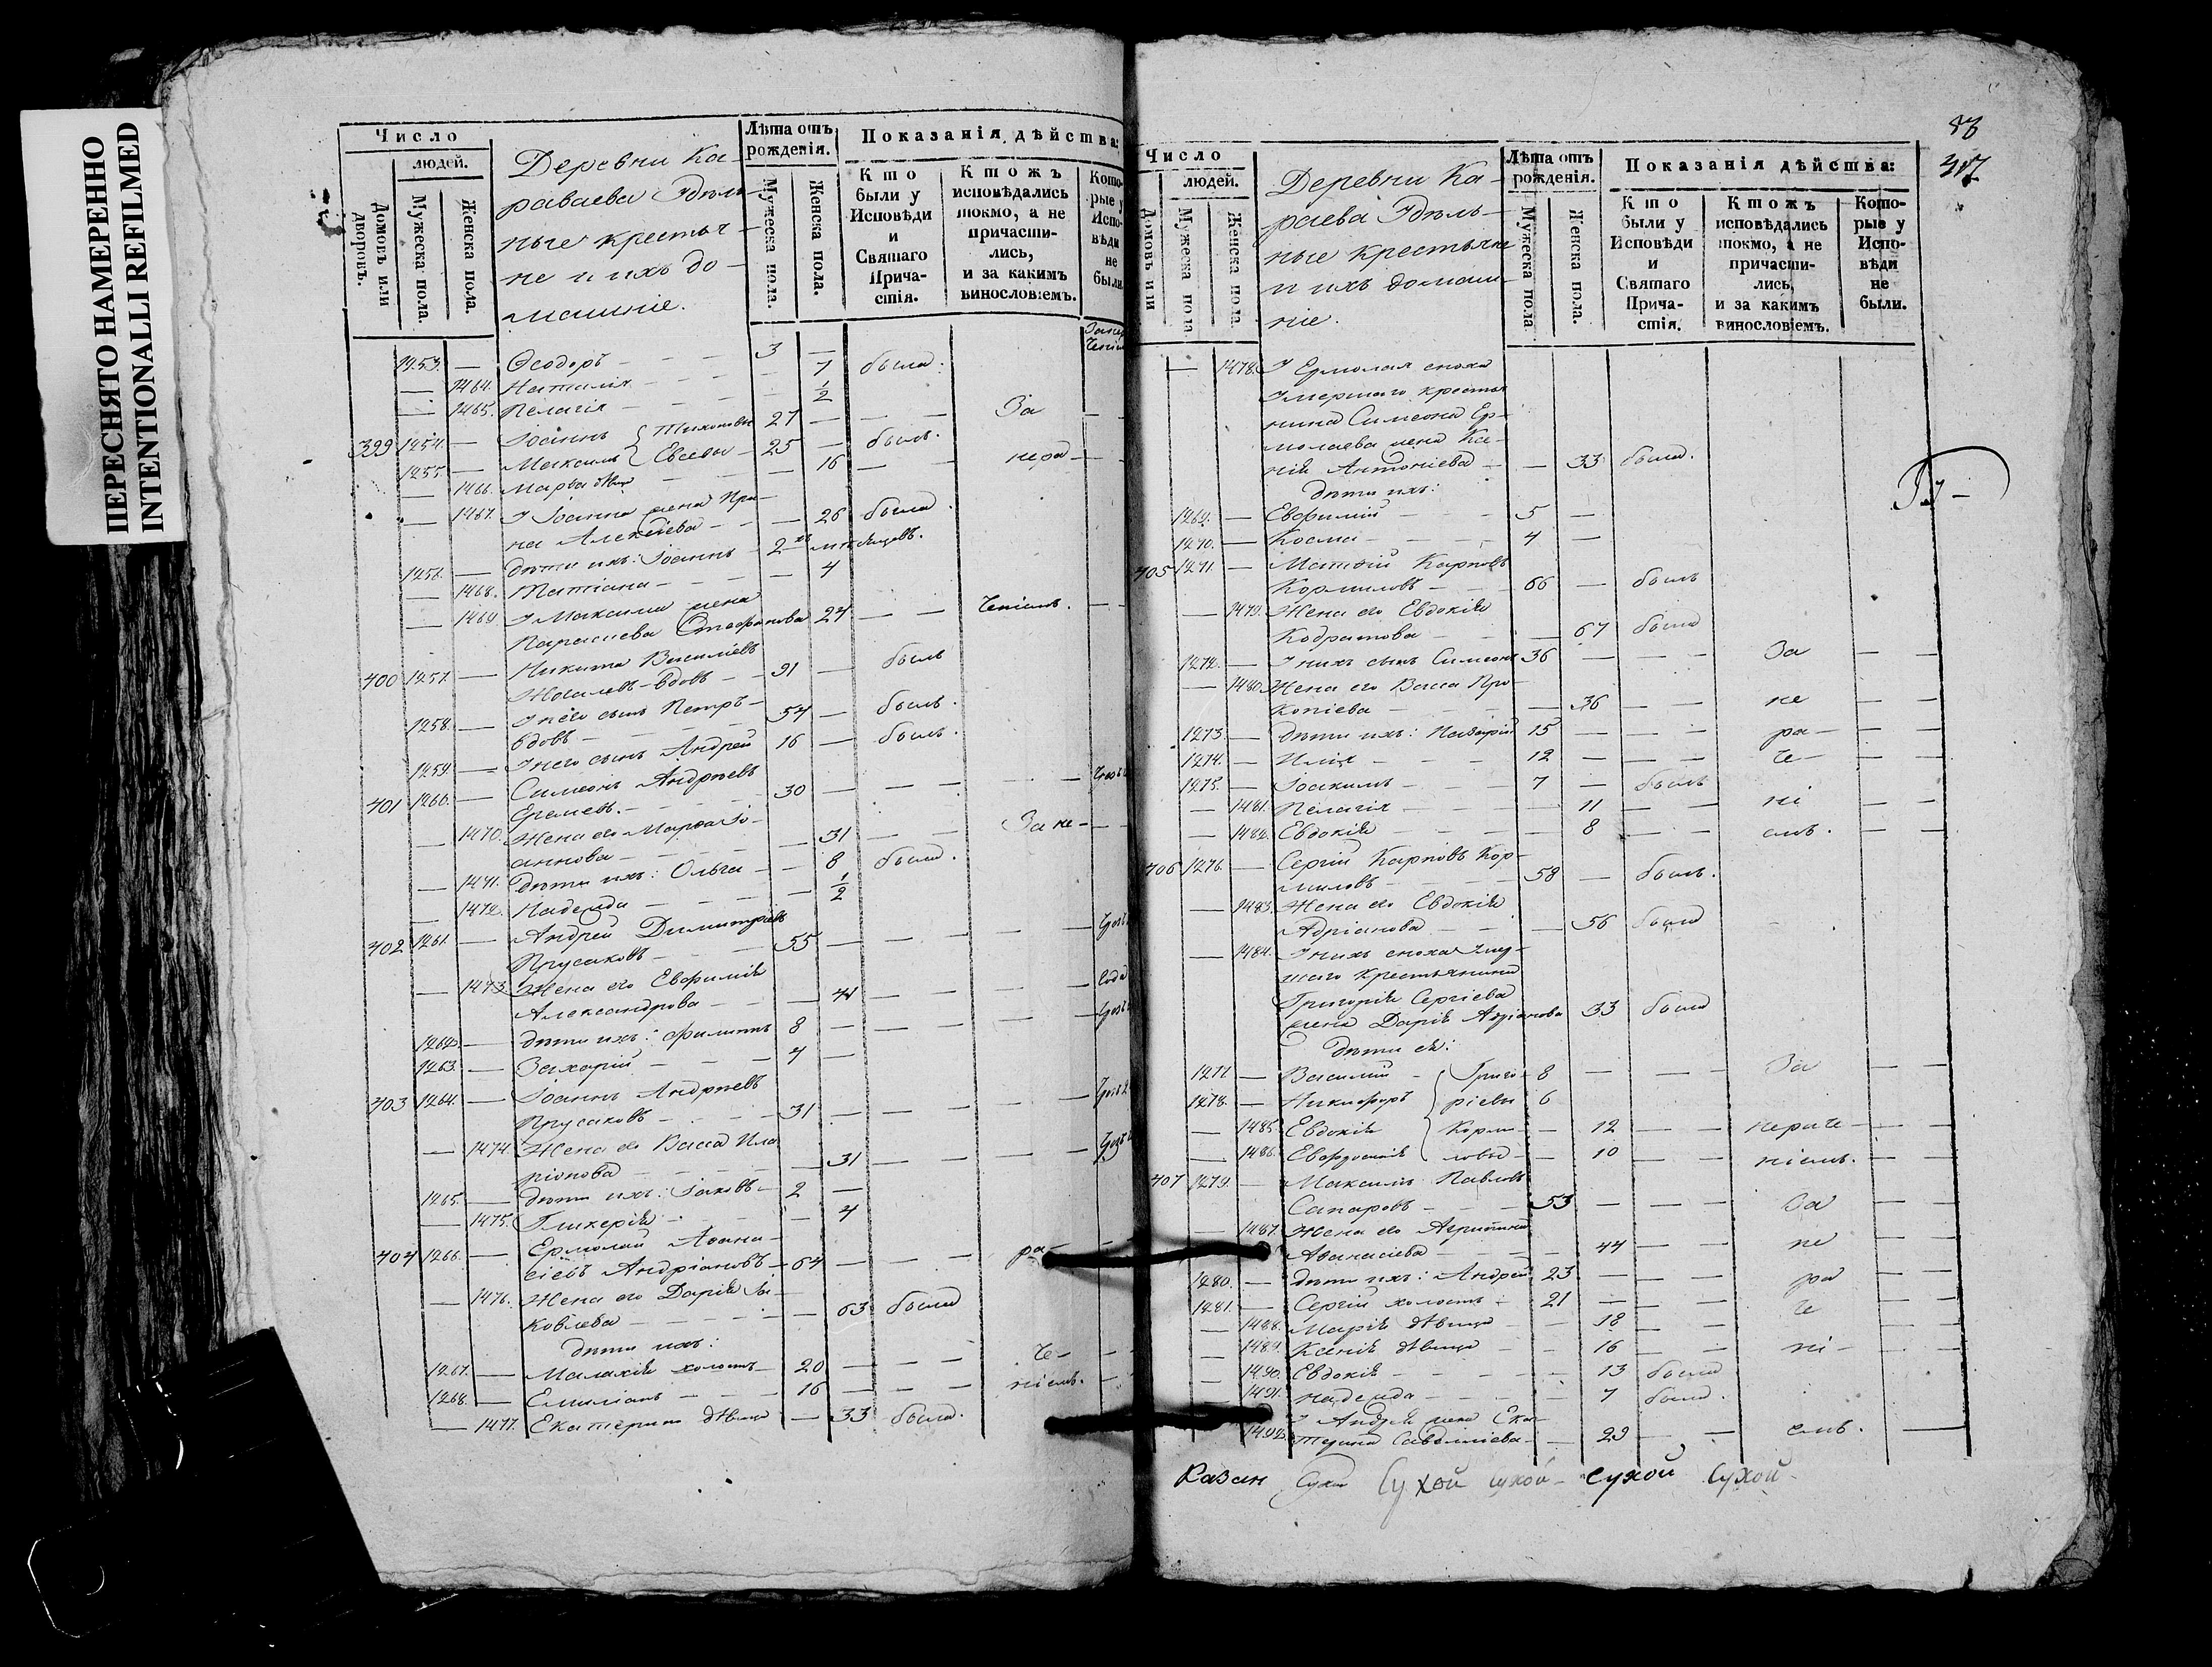 ПЕРЕСНЯТО НАМЕРЕННО
INTENTIONALLI REFILMED
Число
людей.
Домовъ или дворовъ.
Мужеска пола.
Женска пола.
Деревни Ка-
раваева Удѣль-
ные крестья-
не и ихъ до-
машніе.
Лѣта отъ рожденія.
Мужеска пола.
Женска пола.
Показанія дѣйства:
Кто были у Исповѣди и Святаго Причастія.
Ктожъ исповѣдались токмо, а не причастились, и за какимъ винословіемъ.
Которые у Исповѣди не были.
1253. — Ѳеодоръ — 3 —
— 1464. Наталія — 7 была.
— 1465. Пелагія — 1/2
399 1254. — Іоаннъ Тихоновы 27 — — За
1255. — Максимъ Евсевы 25 — былъ.
— 1466. Марѳа дѣвица — 16 — — нера-
— 1467. У Іоанна жена Ири-
на Алексіева — 26 была.
1256. — дѣти ихъ: Іоаннъ — 2хъ мѣсяцевъ.
— 1468. Татіана — 4
— 1469. У Максима жена
Стефанова 24 — — ченіемъ.
400 1257. — Никита Василіевъ
вдовъ — 91 — былъ
1258. — У него сынъ Петръ
вдовъ — 54 — былъ.
1259. — У него сынъ Андрей 16 — былъ.
401 1260. — Симеонъ Андреевъ
30 —
— 1470. Жена его Марѳа Іо-
аннова — 31 — — За не-
— 1471. дѣти ихъ: Ольга — 8 была.
— 1472. Надежда — 1/2
402 1261. — Андрей Димитріевъ
Прусаковъ — 55 —
— 1473. Жена его Евфимія
Александрова — 41 —
1262. — дѣти ихъ: Филиппъ 8 —
1263. — Захарій — 4 —
403 1264. — Іоаннъ Андреевъ
Прусаковъ — 31 —
— 1474. Жена его Васса Ила-
ріонова — 31 —
1265. — дѣти ихъ: Іаковъ — 2 —
— 1475. Гликерія — 4
404 1266. — Ермолай Аѳана-
сіевъ Андріановъ — 64 — — ра-
— 1476. Жена его Дарія Іа-
ковлева — 63 была
дѣти ихъ:
1267. — Малахія холостъ 20 — — че-
1268. — Емиліанъ — 16 — — ніемъ.
— 1477. Екатерина дѣвица — 33 была.
Число
людей.
Домовъ или
Мужеска пола
Женска пола.
Деревни Ка-
раева Удѣль-
ные крестьяне
и ихъ домаш-
ніе.
Лѣта отъ рожденія.
Мужеска пола
Женска пола.
Показанія дѣйства:
Кто были у Исповѣди и Святаго Причастія.
Ктожъ исповѣдались токмо, а не причастились, и за какимъ винословіемъ.
Которые у Исповѣди не были.
— 1478. У Ермолая сноха
умершаго крестья-
нина Симеона Ер-
молаева жена Ксе-
нія Антоніева — 33 была.
дѣти ихъ:
1269. — Евфимій — 5 —
1270. — Косма — 4 —
405 1271. — Матѳій Карповъ
Кормиловъ — 66 — былъ
— 1479. Жена его Евдокія
Кодратова — 67 была
1272. — У нихъ сынъ Симеонъ 36 — — За
— 1480. Жена его Васса Про-
копіева — 36 — — не
1273. — дѣти ихъ: Назарій 15 — — ра-
1274. — Илія — 12 — — че-
1275. — Іоакимъ — 7 — былъ
— 1481. Пелагія — 11 — — ні
— 1482. Евдокія — 8 — — емъ.
406 1276. — Сергій Карповъ Кор-
миловъ — 58 — былъ.
— 1483. Жена его Евдокія
Адріанова — 56 была
— 1484. У нихъ сноха умер-
шаго крестьянина
Григорія Сергіева
жена Дарія Адріанова 33 была
дѣти ея:
1277 — Василій Григо- 8 — — За
1278. — Никифоръ ріевы 6
— 1485. Евдокія Корми- — 12 — — нераче-
— 1486. Евфросинія ловы — 10 — — ніемъ.
407 1279. — Максимъ Павловъ
Сапаровъ — 53 — — За
— 1487. Жена его Агрипина
Аѳанасіева — 44 — — не
1280. — дѣти ихъ: Андрей 23 — — ра
1281. — Сергій холостъ 21 — — че
— 1488. Марія дѣвица — 18 —
— 1489. Ксенія дѣвица — 16 — — ні-
— 1490. Евдокія — 13 была
— 1491. Надежда — 7 была.
1492. У Андрея жена Ека-
терина Савеліева — 23 — — емъ.
Сухой сухой сухой Сухой